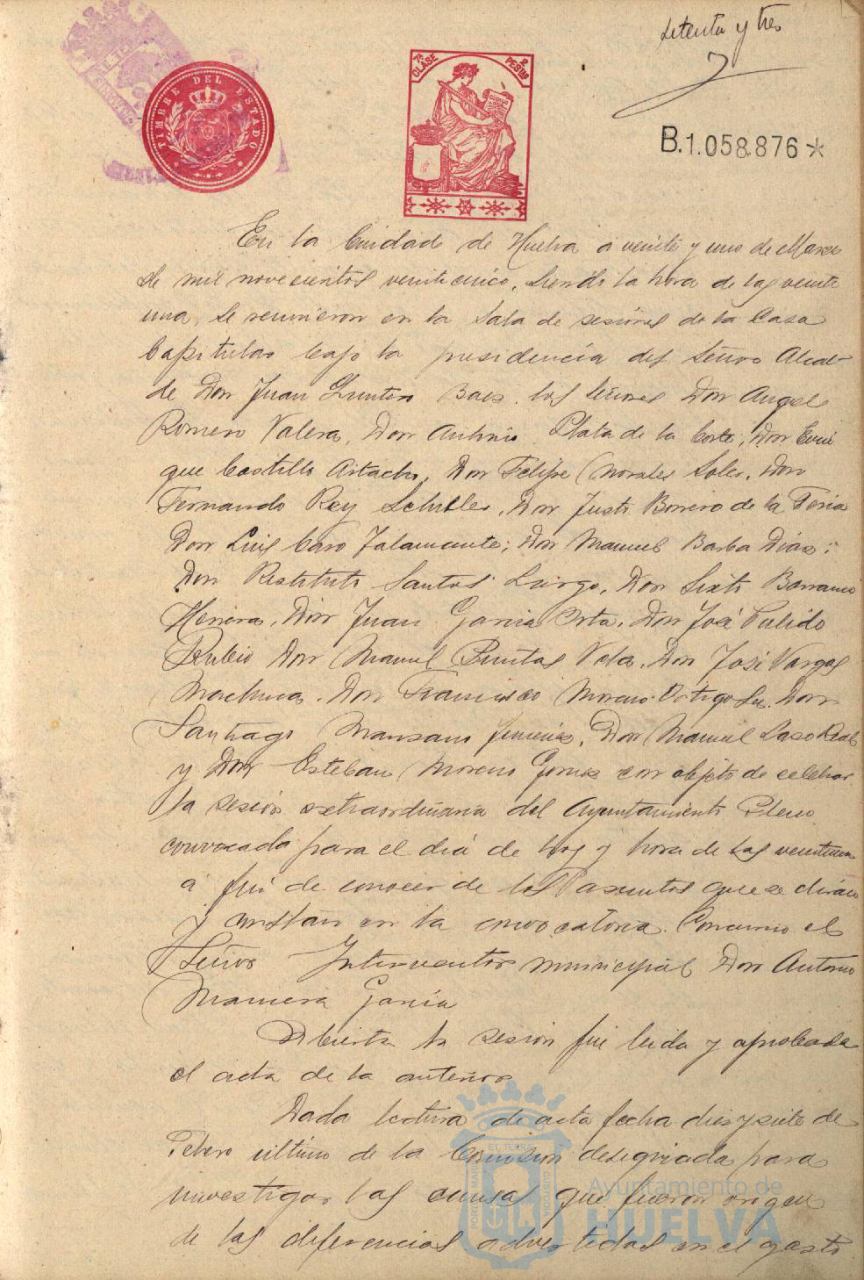 setenta y tres
TIMBRE DEL ESTADO
7ª CLASE 2 PESETAS
B.1.058.876*
En la Ciudad de Huelva a veinte y uno de Marzo
de mil novecientos veinticinco, siendo la hora de las veinte
una, se reunieron en la Sala de sesiones de la Casa
Capitular bajo la presidencia del Señor Alcal-
de Don Juan Quintero Baez los señores Don Angel
Romero Valera, Don Antonio Plata de la Corte, Don Enri
que Castillo Artacho, Don Felipe Morales Soler, Don
Fernando Rey Schiller, Don Justo Borrero de la Feria
Don Luis Caro Talamante; Don Manuel Barba Diaz;
Don Restituto Santos Don Sixto Barranco
Herrera, Don Juan Garcia Orta, Don José Pulido
Rubio Don Manuel Puntas Vela, Don José Vargas
Machuca, Don Francisco Moreno Ortega Don
Santiago Manzano Jimenez, Don Manuel Laso Real
y Don Esteban Moreno Gomez con objeto de celebrar
la sesión extraordinaria del Ayuntamiento Pleno
convocada para el dia de hoy y hora de las veintiuna
á fin de conocer de los asuntos que se dirán
y constan en la convocatoria. Concurrió el
Señor Interventor municipal Don Antonio
Garcia
Abierta la sesión fué leida y aprobada
el acta de la anterior
Dada lectura de acta fecha diez y siete de
Febro último de la Comision designada para
investigar las causas que fueron origen
de las diferencias advertidas en el gasto
Ayuntamiento de
HUELVA